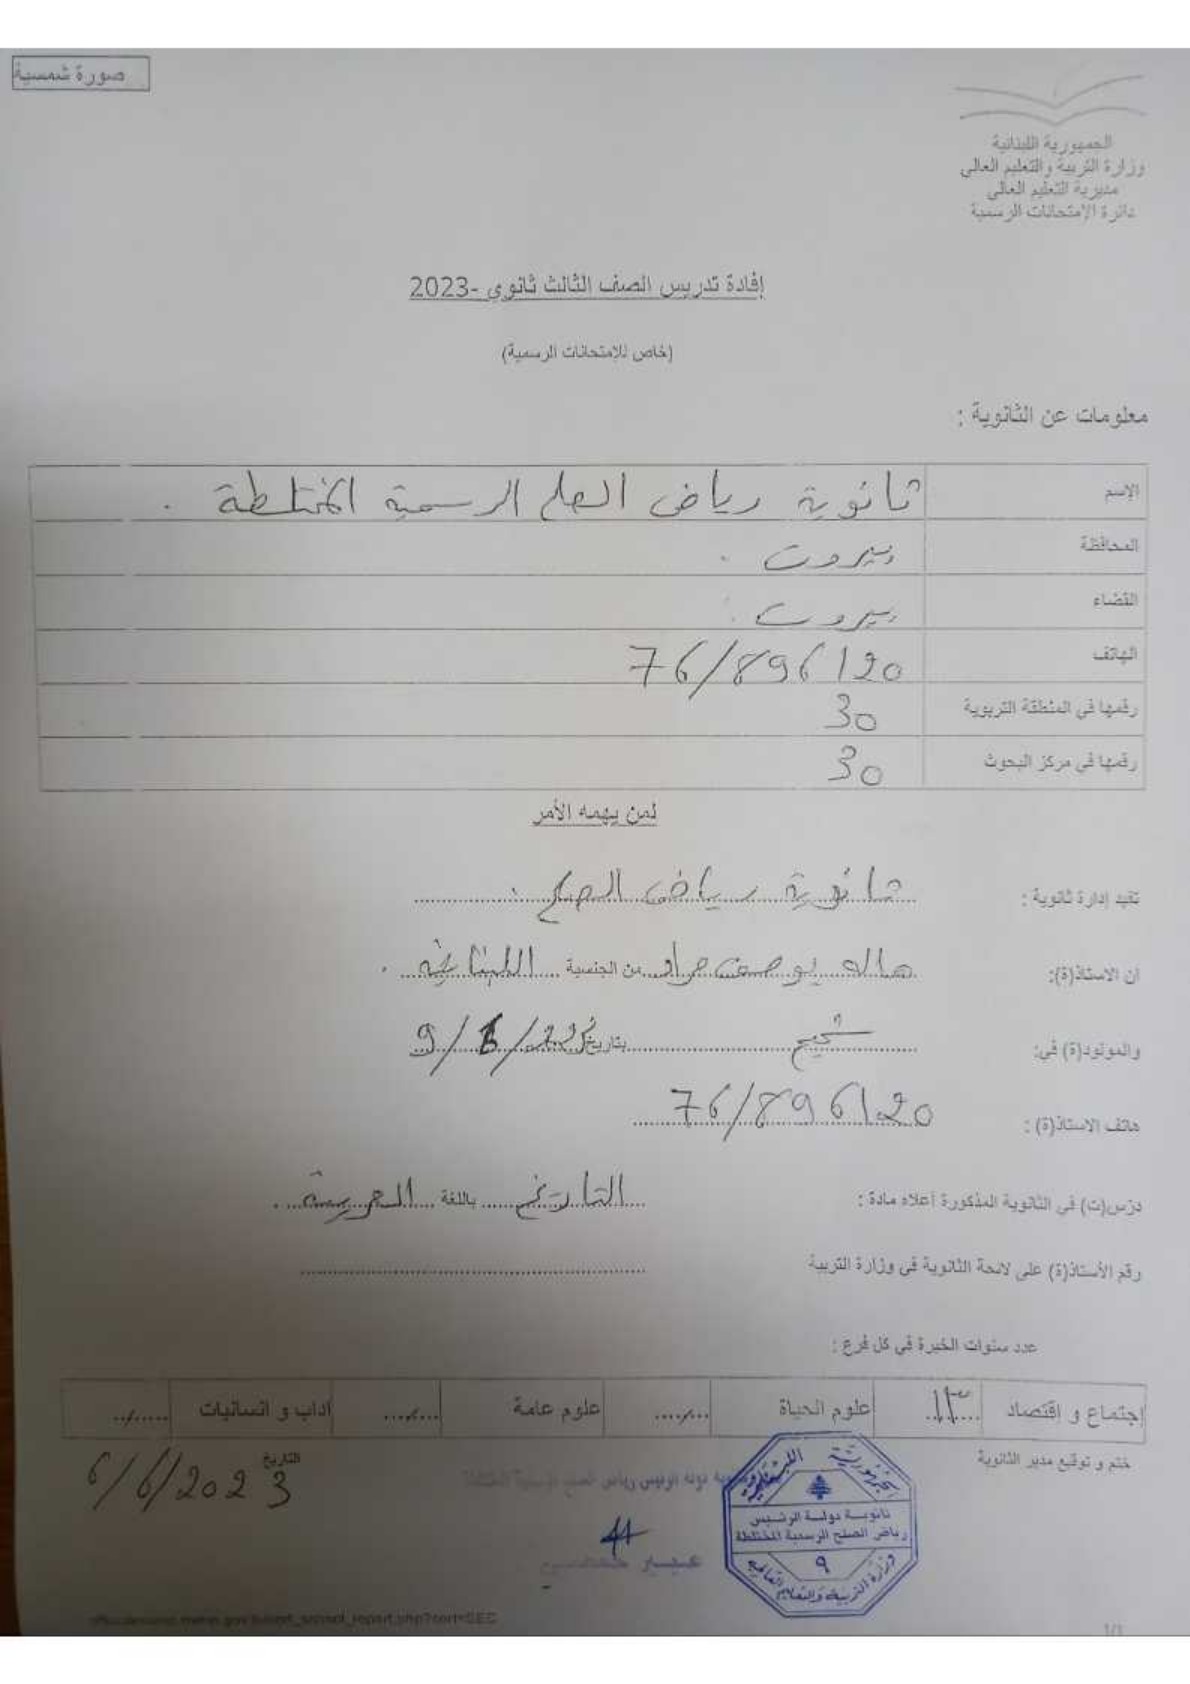 صورة شمسية
الجمهورية اللبنانية
وزارة التربية والتعليم العالي
مديرية التعليم العالي
دائرة الامتحانات الرسمية
إفادة تدريس الصف الثالث ثانوي -2023
(خاص للامتحانات الرسمية)
معلومات عن الثانوية :
الاسم ثانوية رياض الصلح الرسمية المختلطة .
المحافظة بيروت .
القضاء بيروت .
الهاتف 76/896120
رقمها في المنطقة التربوية 30
رقمها في مركز البحوث 30
لمن يهمه الأمر
تفيد إدارة ثانوية : ثانوية رياض الصلح .
ان الاستاذ(ة): هاله يوصف مراد من الجنسية اللبنانية .
والمولود(ة) في: بتاريخ
هاتف الاستاذ(ة) : 76/896120
درّس(ت) في الثانوية المذكورة أعلاه مادة : التاريخ باللغة العربية .
رقم الأستاذ(ة) على لائحة الثانوية في وزارة التربية
عدد سنوات الخبرة في كل فرع :
إجتماع و اقتصاد ١٣ علوم الحياة / علوم عامة / آداب و انسانيات /
ختم و توقيع مدير الثانوية التاريخ 6/6/2023
الجمهورية اللبنانية
ثانوية دولة الرئيس
رياض الصلح الرسمية المختلطة
٩
وزارة التربية والتعليم العالي
عبير
1/1